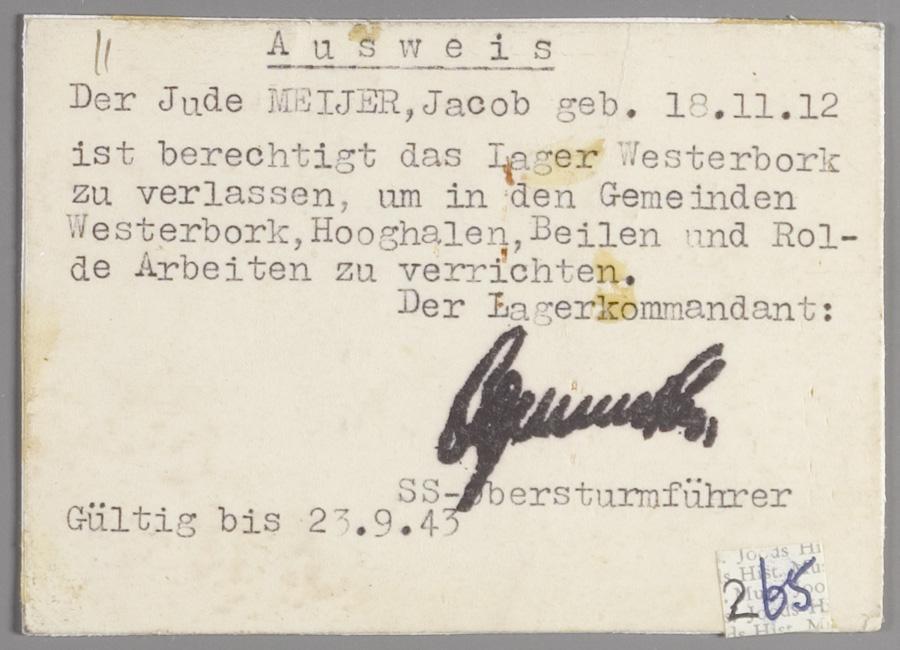 11
Ausweis
Der Jude MEIJER, Jacob geb. 18.11.12
ist berechtigt das Lager Westerbork
zu verlassen, um in den Gemeinden
Westerbork, Hooghalen, Beilen und Rol-
de Arbeiten zu verrichten.
Der Lagerkommandant:
SS-Obersturmführer
Gültig bis 23.9.43
265